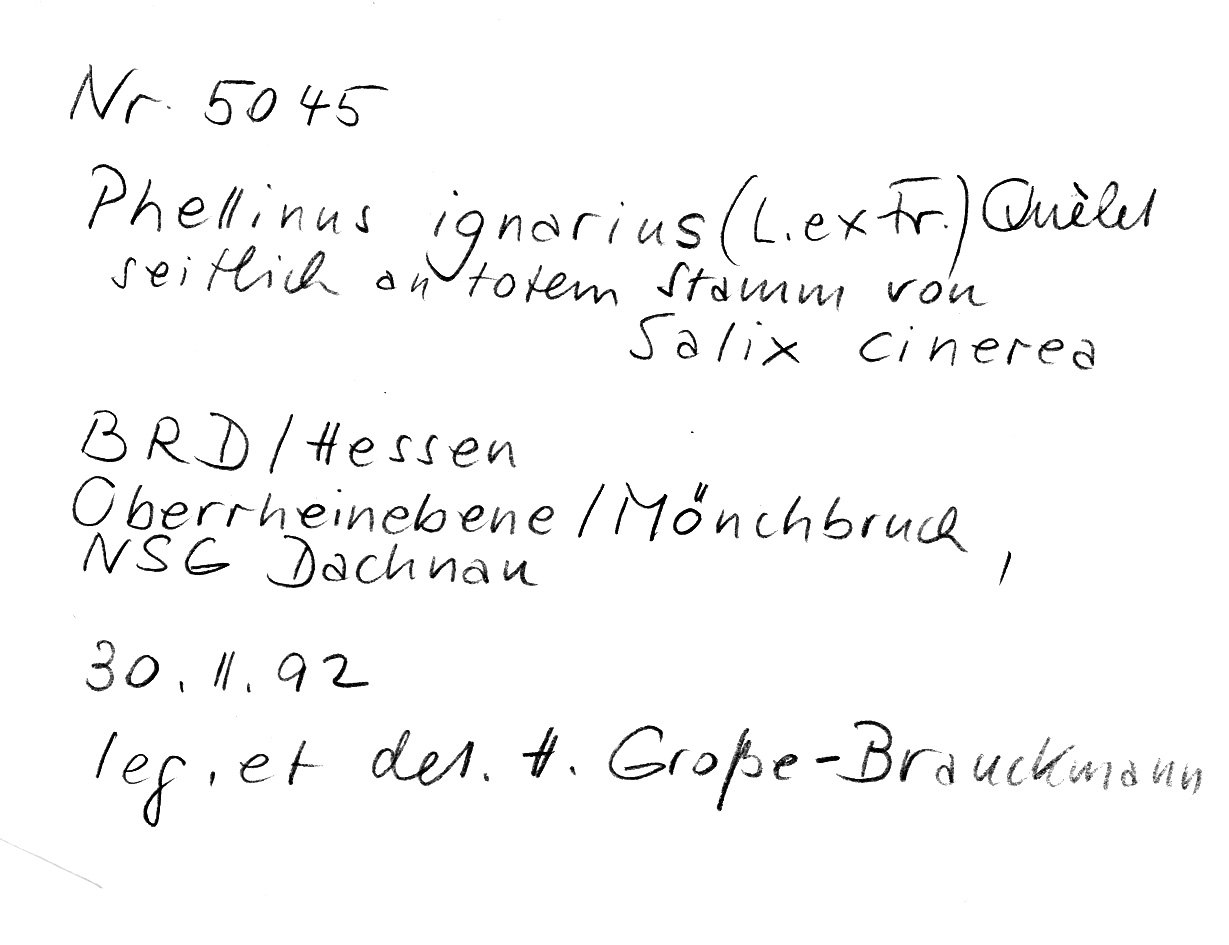 Nr. 5045
Phellinus ignarius (L. ex Fr.) Quèlet
seitlich an totem Stamm von
Salix cinerea
BRD/Hessen
Oberrheinebene/Mönchbruch,
NSG Dachnau
30.11.92
leg. et det. H. Große-Brauckmann